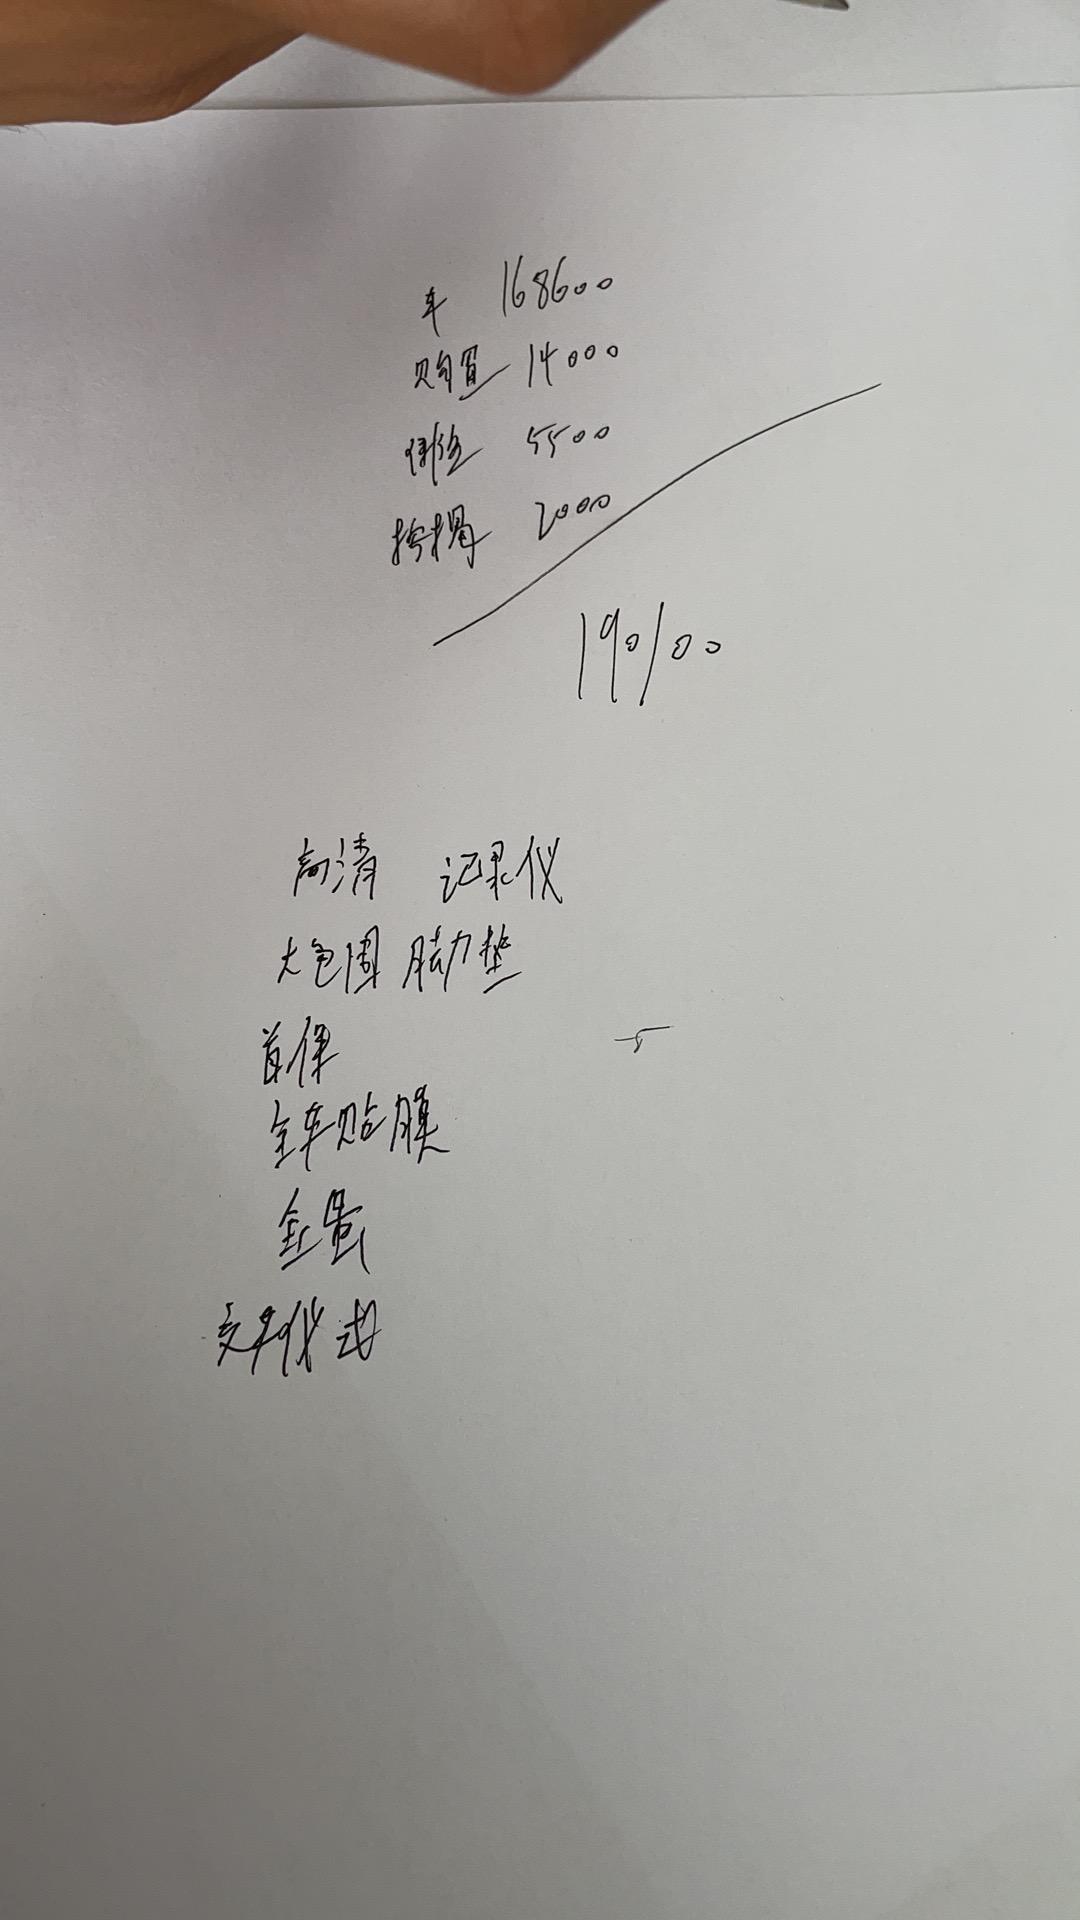 车 168600
购置 14000
保险 5500
2000
190100
高清 记录仪
大包围 脚垫
首保
全车贴膜
金蛋
交车仪式